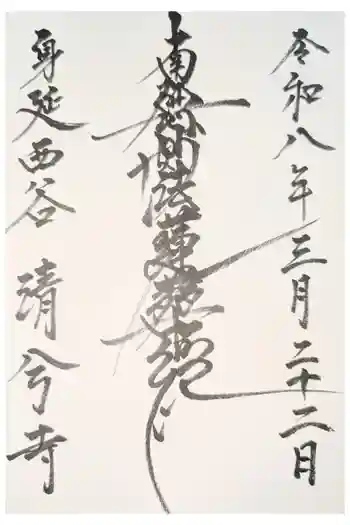 令和八年三月二十二日
南無妙法蓮華経
身延西谷 清兮寺